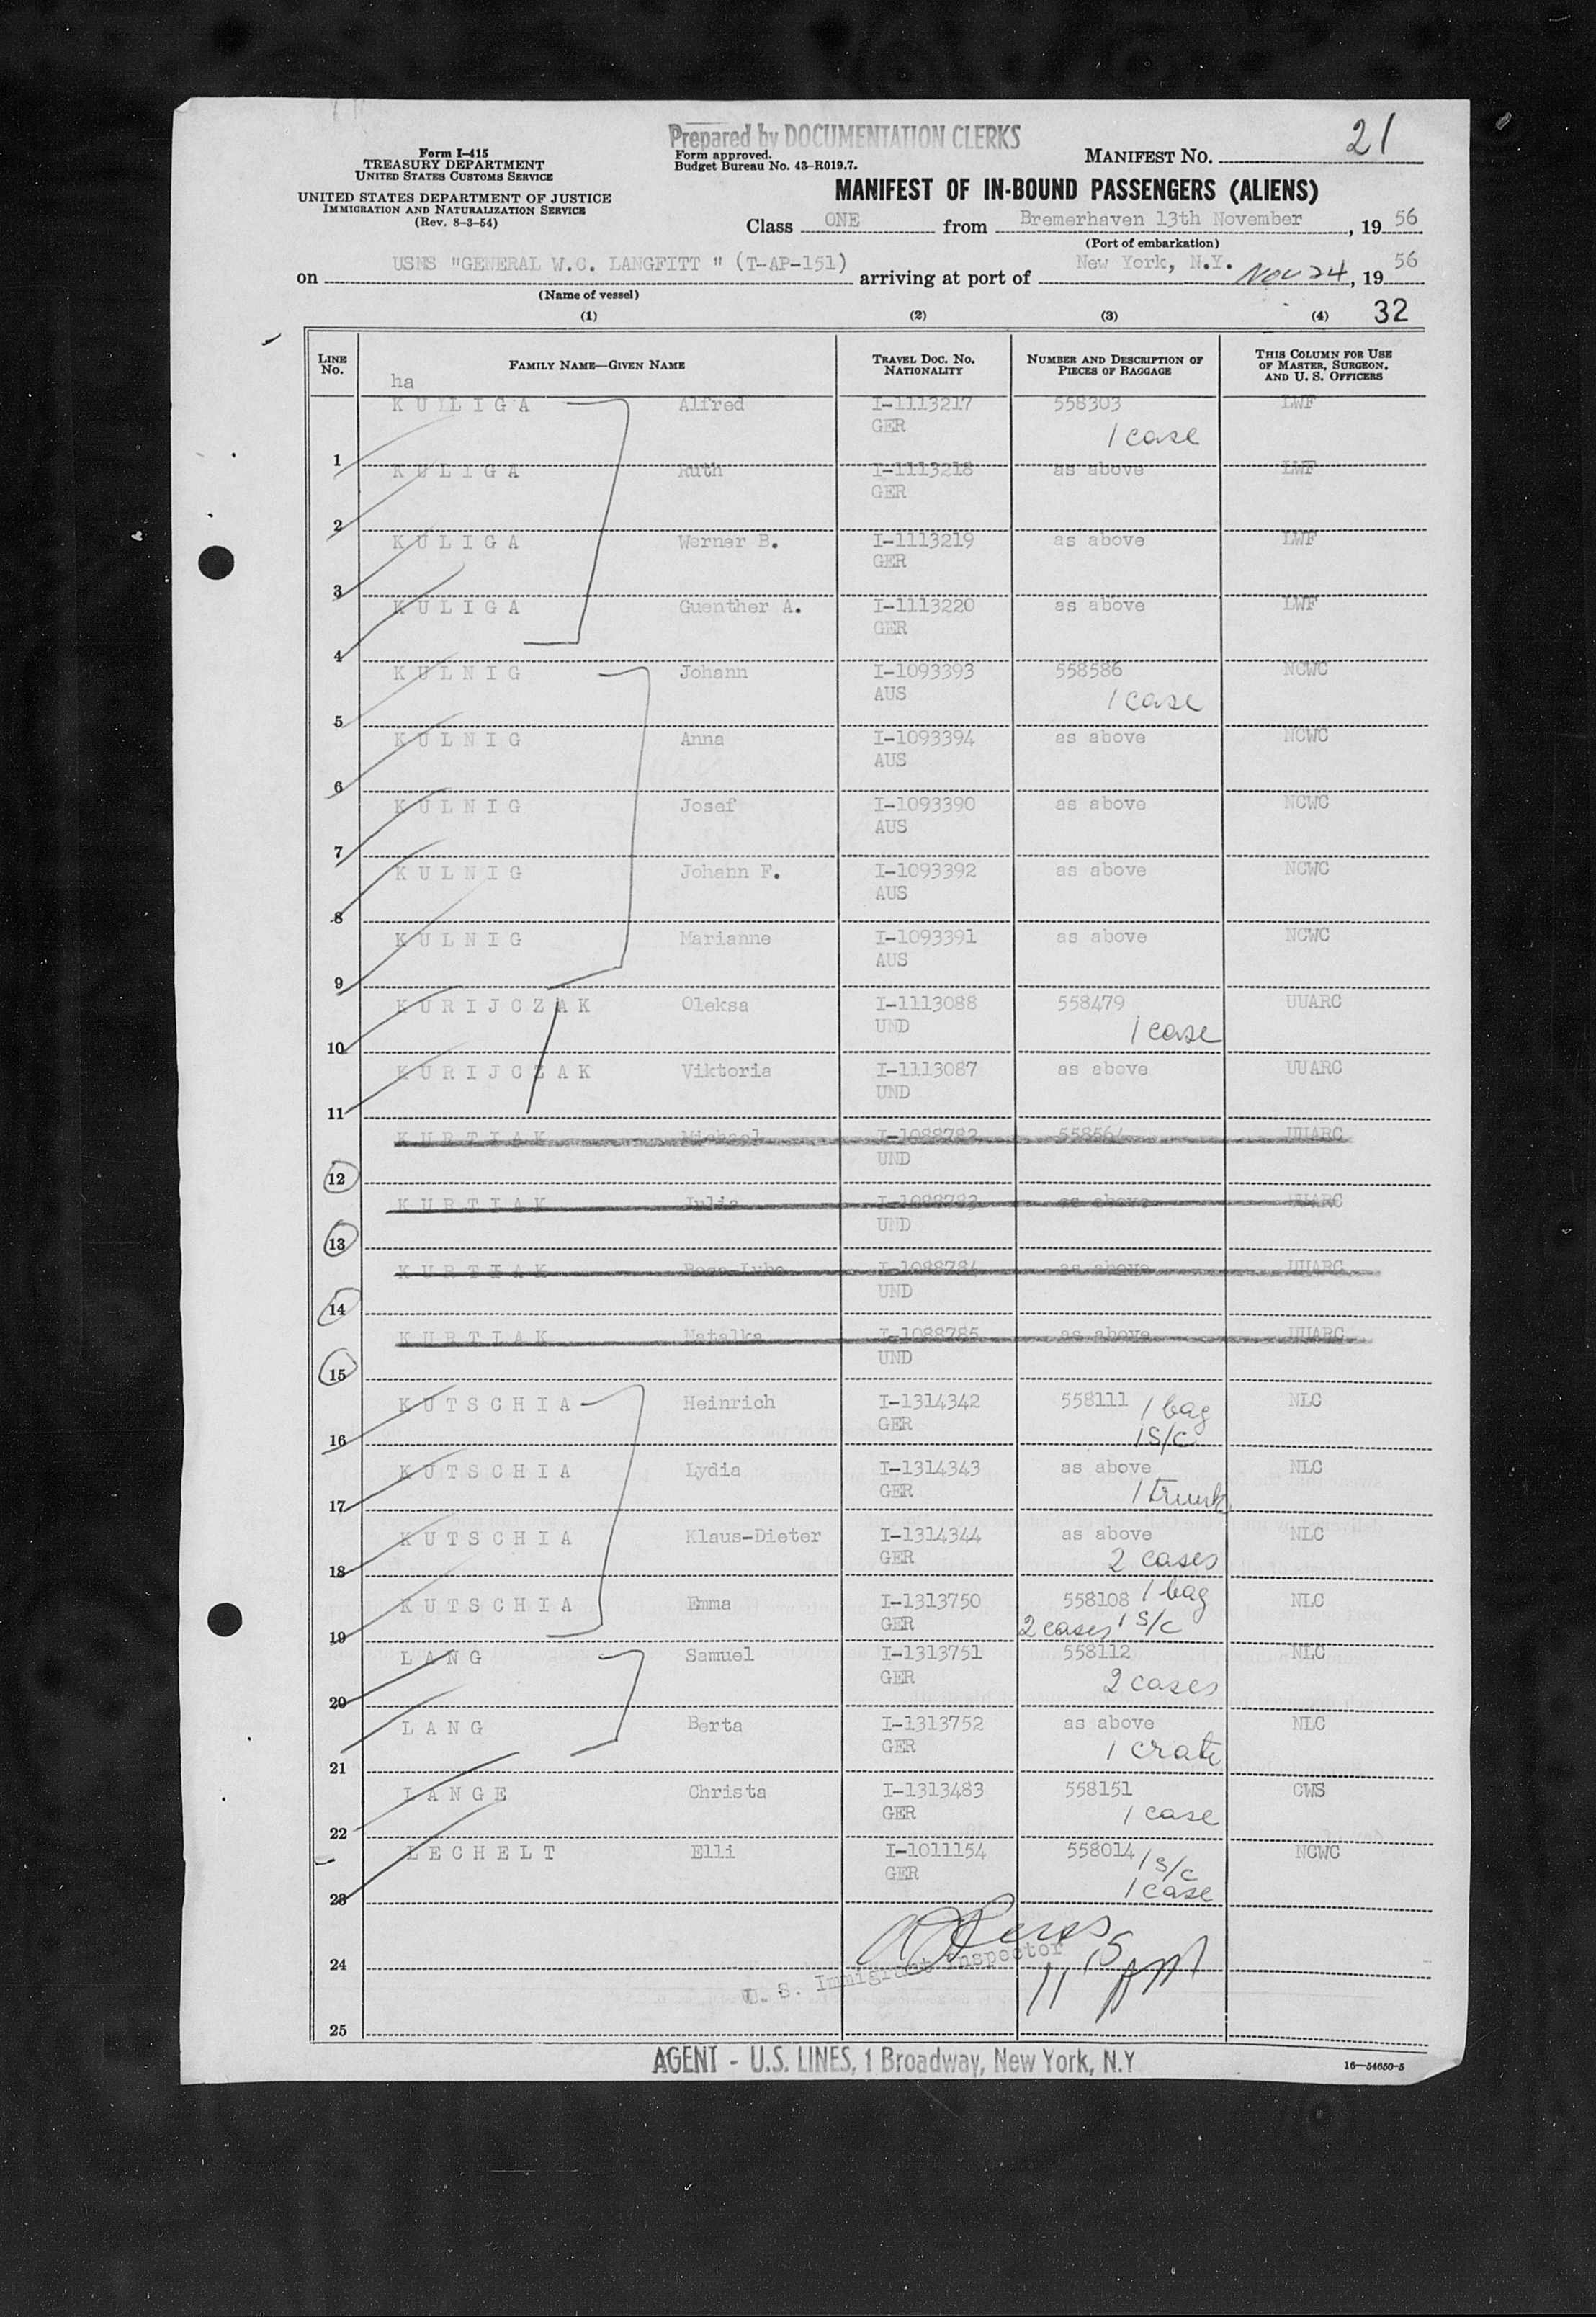 Prepared by DOCUMENTATION CLERKS
21
Form I-415
TREASURY DEPARTMENT
UNITED STATES CUSTOMS SERVICE
Form approved.
Budget Bureau No. 43-R019.7.
MANIFEST NO.
UNITED STATES DEPARTMENT OF JUSTICE
IMMIGRATION AND NATURALIZATION SERVICE
(Rev. 8-3-54)
MANIFEST OF IN-BOUND PASSENGERS (ALIENS)
Class ONE from Bremerhaven 13th November, 19 56
(Port of embarkation)
on USNS "GENERAL W.C. LANGFITT " (T-AP-151) arriving at port of New York, N.Y. Nov 24, 19 56
(Name of vessel)
(1) (2) (3) (4) 32
LINE No. FAMILY NAME—GIVEN NAME TRAVEL DOC. NO. NATIONALITY NUMBER AND DESCRIPTION OF PIECES OF BAGGAGE THIS COLUMN FOR USE OF MASTER, SURGEON, AND U. S. OFFICERS
ha
1 KULIGA Alfred I-1113217 558303 LWF
GER 1 case
2 KULIGA Ruth I-1113218 as above LWF
GER
3 KULIGA Werner B. I-1113219 as above LWF
GER
4 KULIGA Guenther A. I-1113220 as above LWF
GER
5 KULNIG Johann I-1093393 558586 NCWC
AUS 1 case
6 KULNIG Anna I-1093394 as above NCWC
AUS
7 KULNIG Josef I-1093390 as above NCWC
AUS
8 KULNIG Johann F. I-1093392 as above NCWC
AUS
9 KULNIG Marianne I-1093391 as above NCWC
AUS
10 KURIJCZAK Oleksa I-1113088 558479 UUARC
UND 1 case
11 KURIJCZAK Viktoria I-1113087 as above UUARC
UND
12 KURTIAK Michael I-1088782 UUARC
UND
13 KURTIAK Julia I-1088783 as above UUARC
UND
14 KURTIAK I-1088784 as above UUARC
UND
15 KURTIAK Natalka I-1088785 as above UUARC
UND
16 KUTSCHIA Heinrich I-1314342 558111 1 bag NLC
GER 1 S/C
17 KUTSCHIA Lydia I-1314343 as above NLC
GER 1 trunk
18 KUTSCHIA Klaus-Dieter I-1314344 as above NLC
GER 2 cases
19 KUTSCHIA Emma I-1313750 558108 1 bag NLC
GER 2 cases 1 S/C
20 LANG Samuel I-1313751 558112 NLC
GER 2 cases
21 LANG Berta I-1313752 as above NLC
GER 1 crate
22 LANGE Christa I-1313483 558151 CWS
GER 1 case
23 LECHELT Elli I-1011154 558014 1 S/C NCWC
GER 1 case
24 U. S. Immigrant Inspector 11 15 AM
25
AGENT - U.S. LINES, 1 Broadway, New York, N.Y
16—54650-5